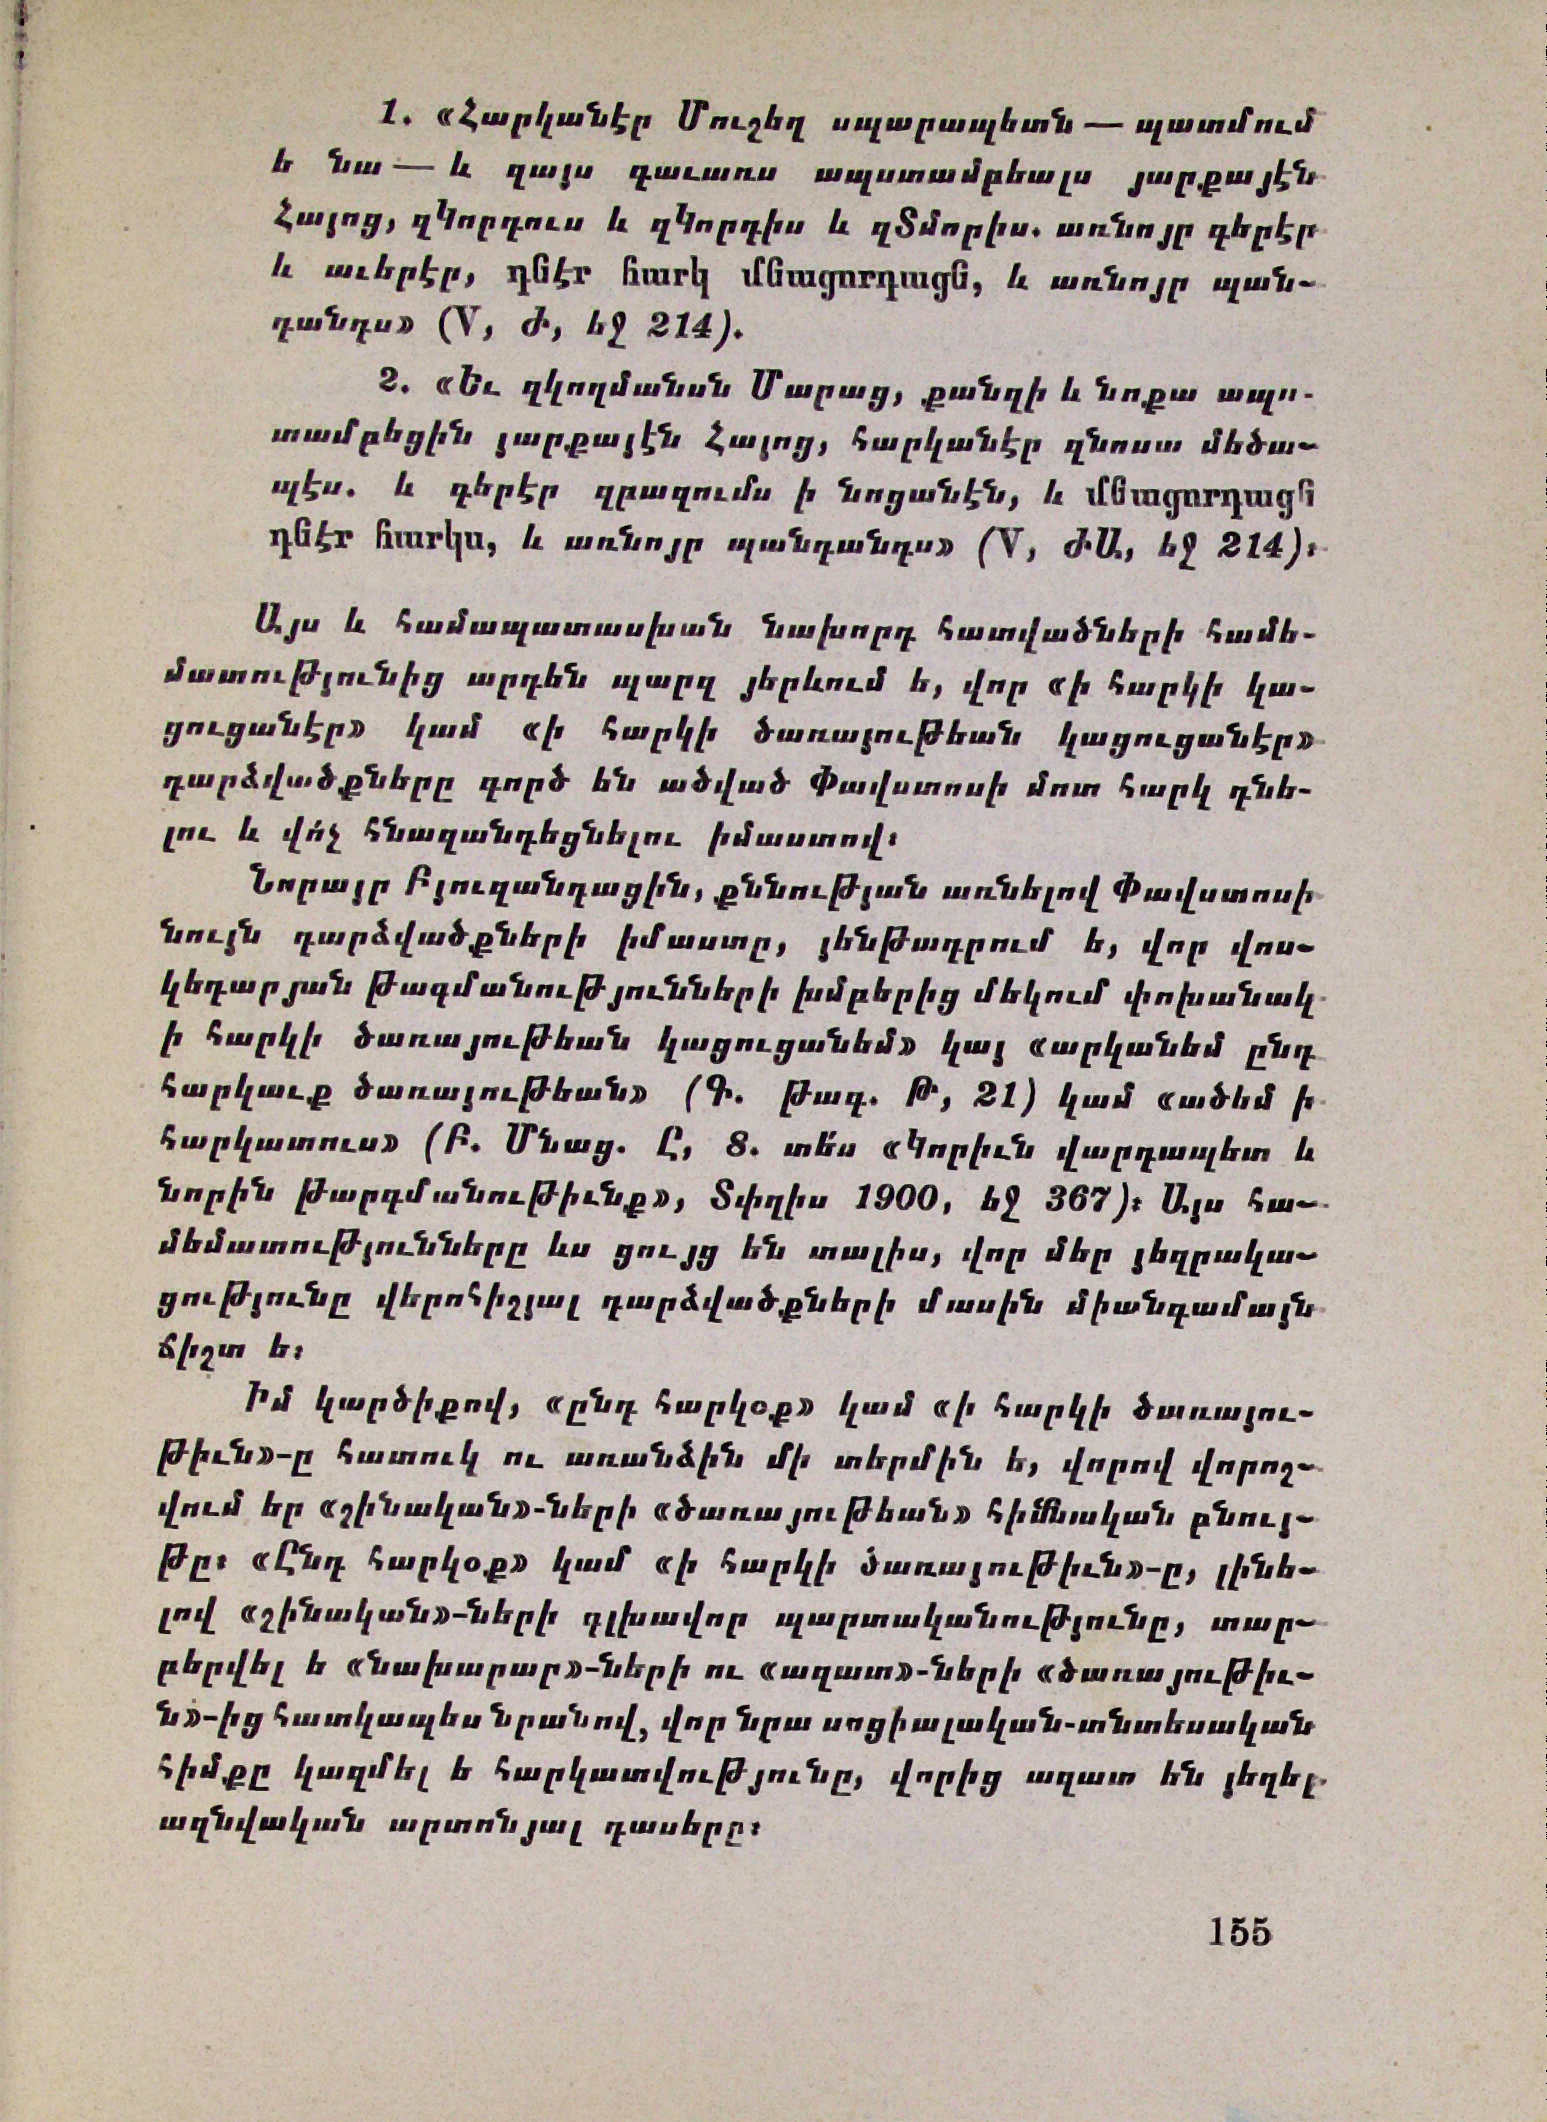 1. «Հարկանէր Մուշեղ սպարապետն — պատմում
ե նա — և զայս գաւառս ապստամբեալս յարքայէն
Հայոց, զԿորդուս և զԿորդիս և զՏմորիս. առնոյր գերէր
և աւերէր, դնէր հարկ մնացորդացն, և առնոյր պան-
դանդս» (V, Ժ, եջ 214).
2. «Եւ զկողմանսն Մարաց, քանզի և նոքա ապս-
տամբեցին յարքայէն Հայոց, հարկանէր զնոսա մեծա-
պէս. և գերէր զբազումս ի նոցանէն, և մնացորդացն
դնէր հարկս, և առնոյր պանդանդս» (V, ԺԱ, եջ 214)։
Այս և համապատասխան նախորդ հատվածների համե-
մատությունից արդեն պարզ յերևում ե, վոր «ի հարկի կա-
ցուցանէր» կամ «ի հարկի ծառայութեան կացուցանէր»
դարձվածքները գործ են ածված Փավստոսի մոտ հարկ դնե-
լու և վո՛չ հնազանդեցնելու իմաստով։
Նորայր Բյուզանդացին, քննության առնելով Փավստոսի
նույն դարձվածքների իմաստը, յենթադրում ե, վոր վոս-
կեդարյան թագմանությունների խմբերից մեկում փոխանակ
ի հարկի ծառայութեան կացուցանեմ» կայ «արկանեմ ընդ
հարկաւք ծառայութեան» (Գ. թագ. Թ, 21) կամ «ածեմ ի
հարկատուս» (Բ. Մնաց. Ը, 8. տե՛ս «Կորիւն վարդապետ և
նորին թարգմանութիւնք», Տփղիս 1900, եջ 367)։ Այս հա-
մեմատությունները ևս ցույց են տալիս, վոր մեր յեզրակա-
ցությունը վերոհիշյալ դարձվածքների մասին միանգամայն
ճիշտ ե։
Իմ կարծիքով, «ընդ հարկօք» կամ «ի հարկի ծառայու-
թիւն»-ը հատուկ ու առանձին մի տերմին ե, վորով վորոշ-
վում եր «շինական»-ների «ծառայութեան» հիմնական բնույ-
թը։ «Ընդ հարկօք» կամ «ի հարկի ծառայութիւն»-ը, լինե-
լով «շինական»-ների գլխավոր պարտականությունը, տար-
բերվել ե «նախարար»-ների ու «ազատ»-ների «ծառայութիւ-
ն»-ից հատկապես նրանով, վոր նրա սոցիալական-տնտեսական
հիմքը կազմել ե հարկատվությունը, վորից ազատ են յեղել
ազնվական արտոնյալ դասերը։
155